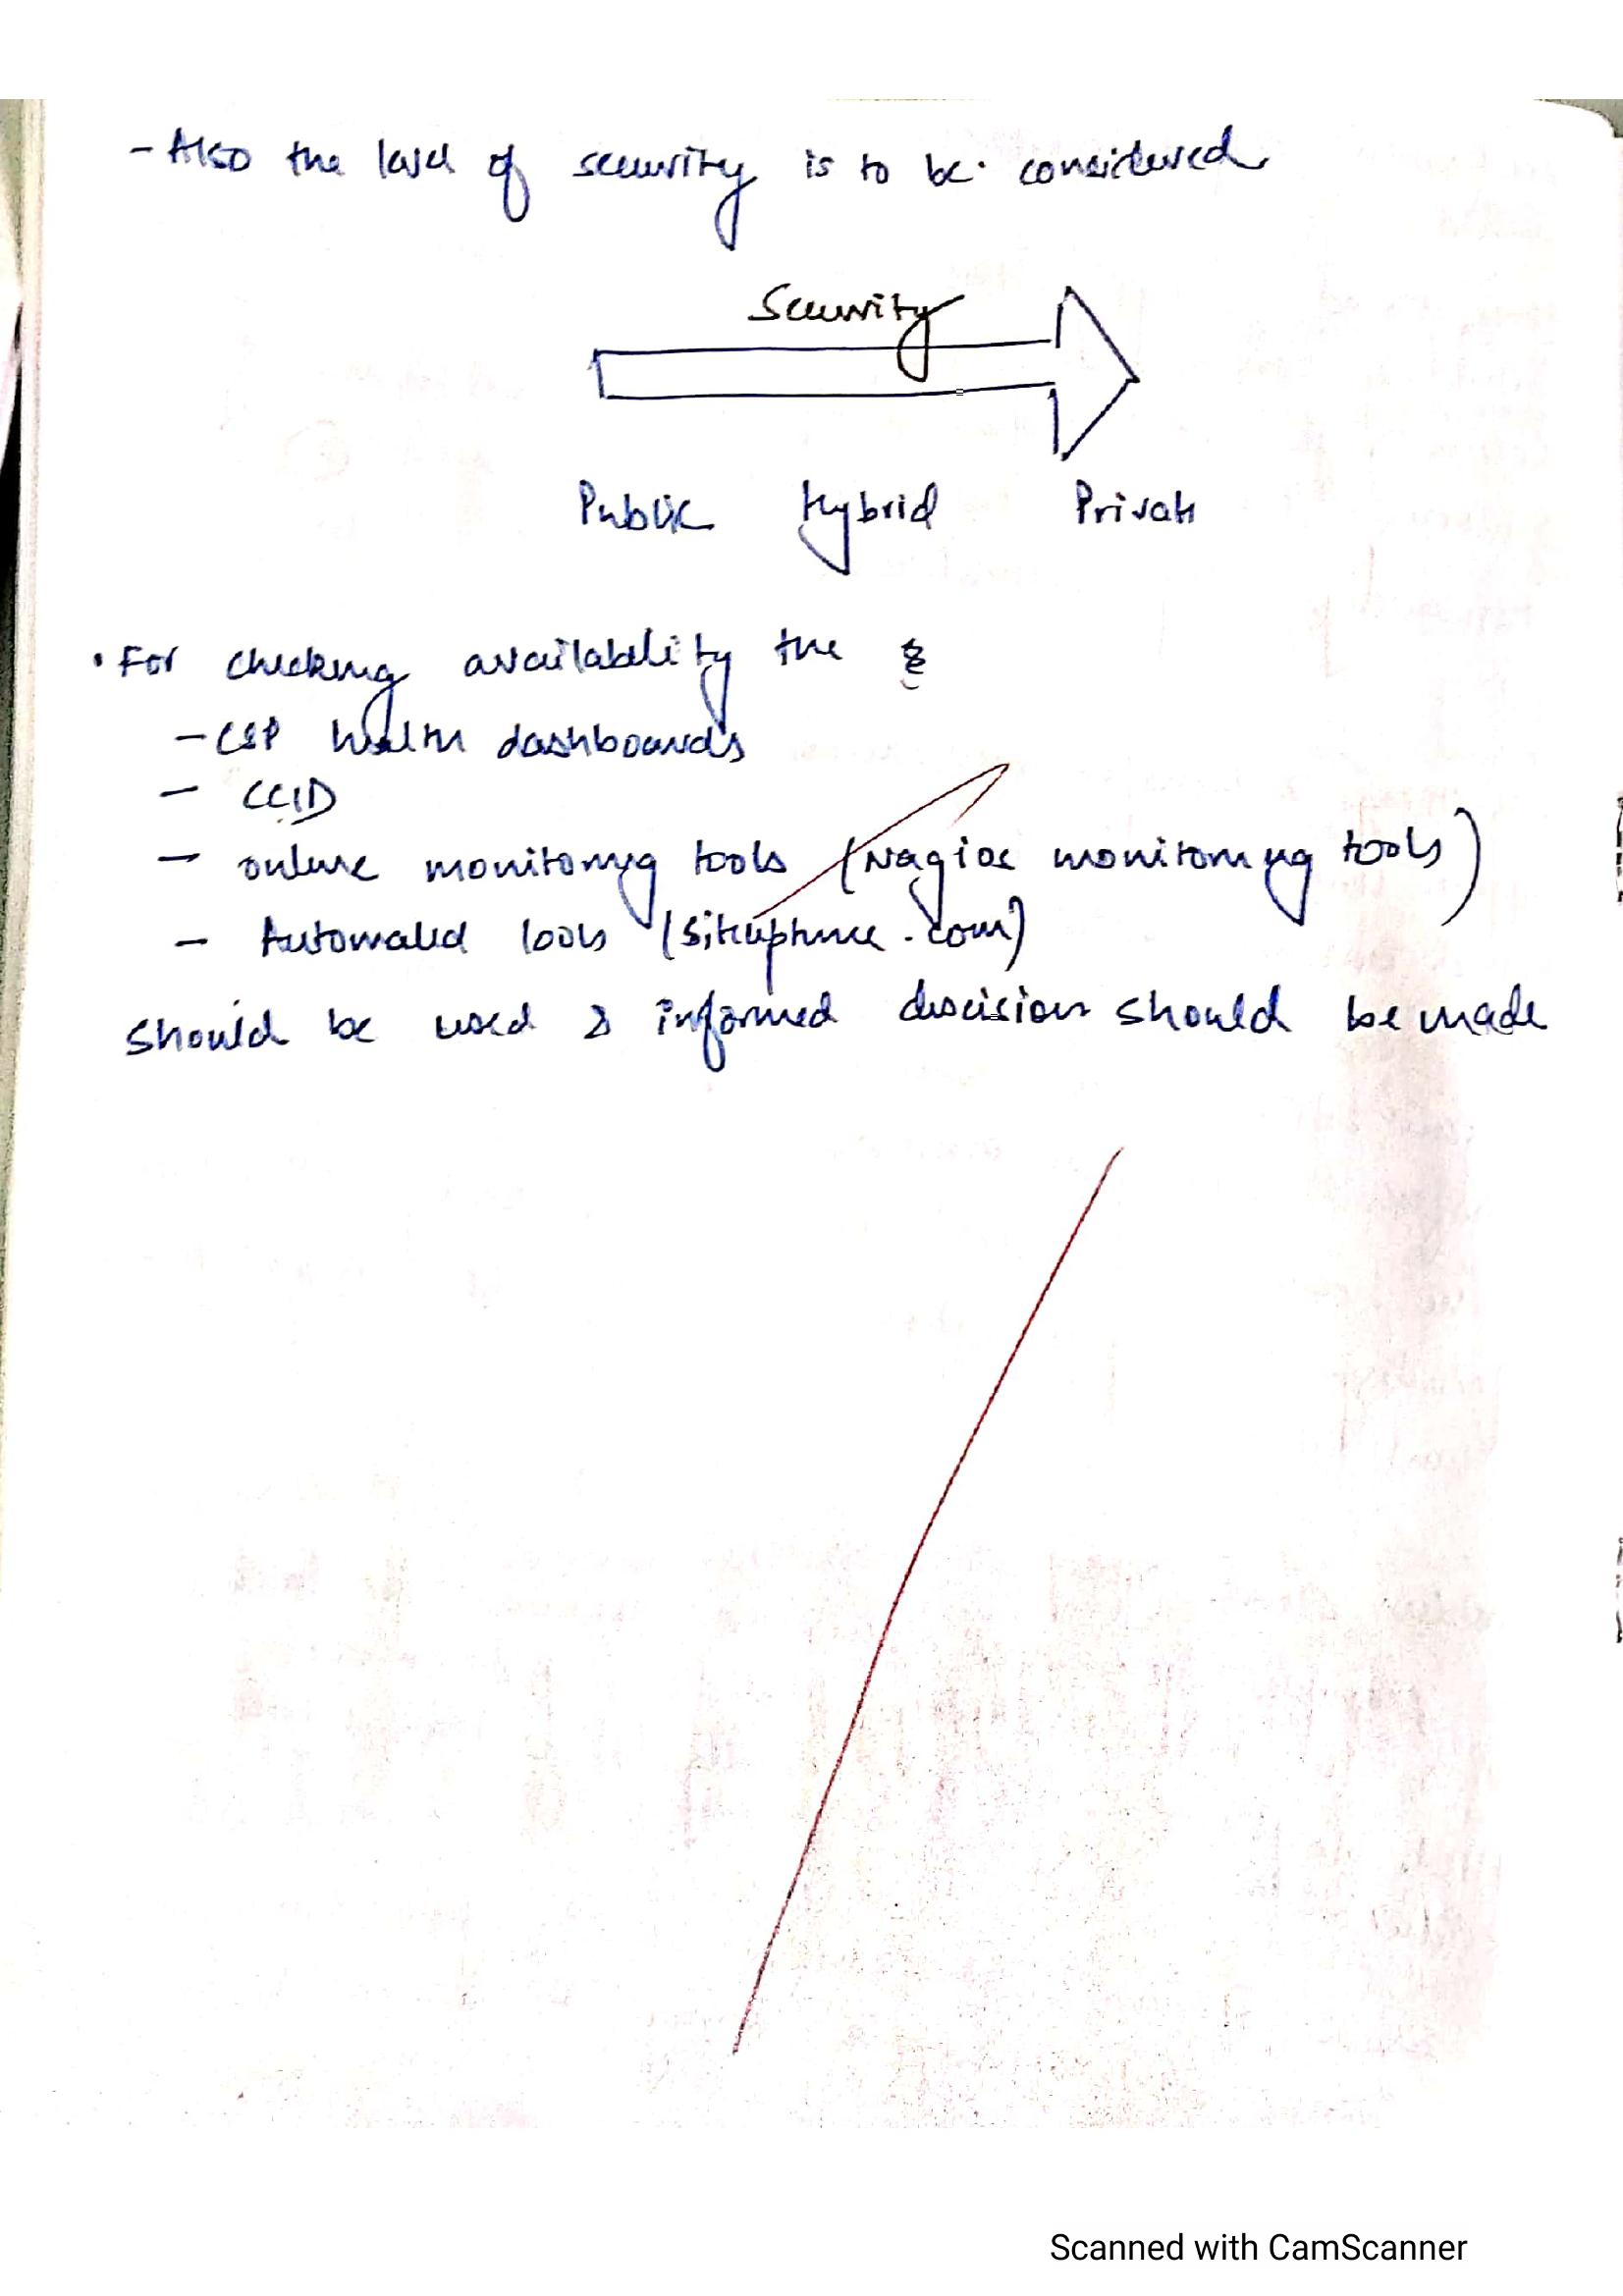 - Also the level of security is to be considered
Security
Public Hybrid Private
• For checking availability the
- CSP health dashboards
- CCID
- online monitoring tools (Nagios monitoring tools)
- Automated tools (Siteuptime.com)
should be used & informed descision should be made
Scanned with CamScanner